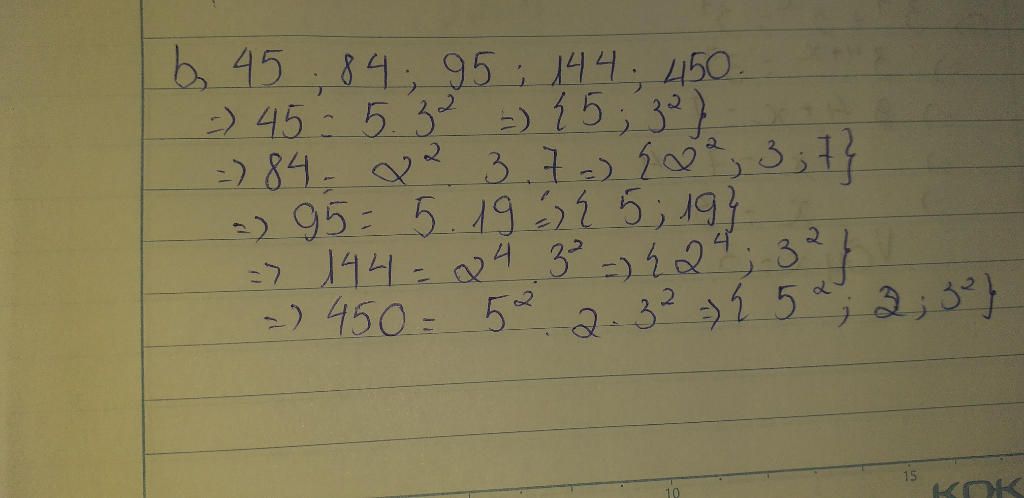 b, 45 ; 84 ; 95 ; 144 ; 450.
=> 45 = 5. 3² => {5 ; 3²}
=> 84 = 2² . 3 . 7 => {2² ; 3 ; 7}
=> 95 = 5 . 19 => { 5 ; 19}
=> 144 = 2⁴ . 3² => {2⁴ ; 3² }
=> 450 = 5² . 2 . 3² => { 5² ; 2 ; 3²}
10 15